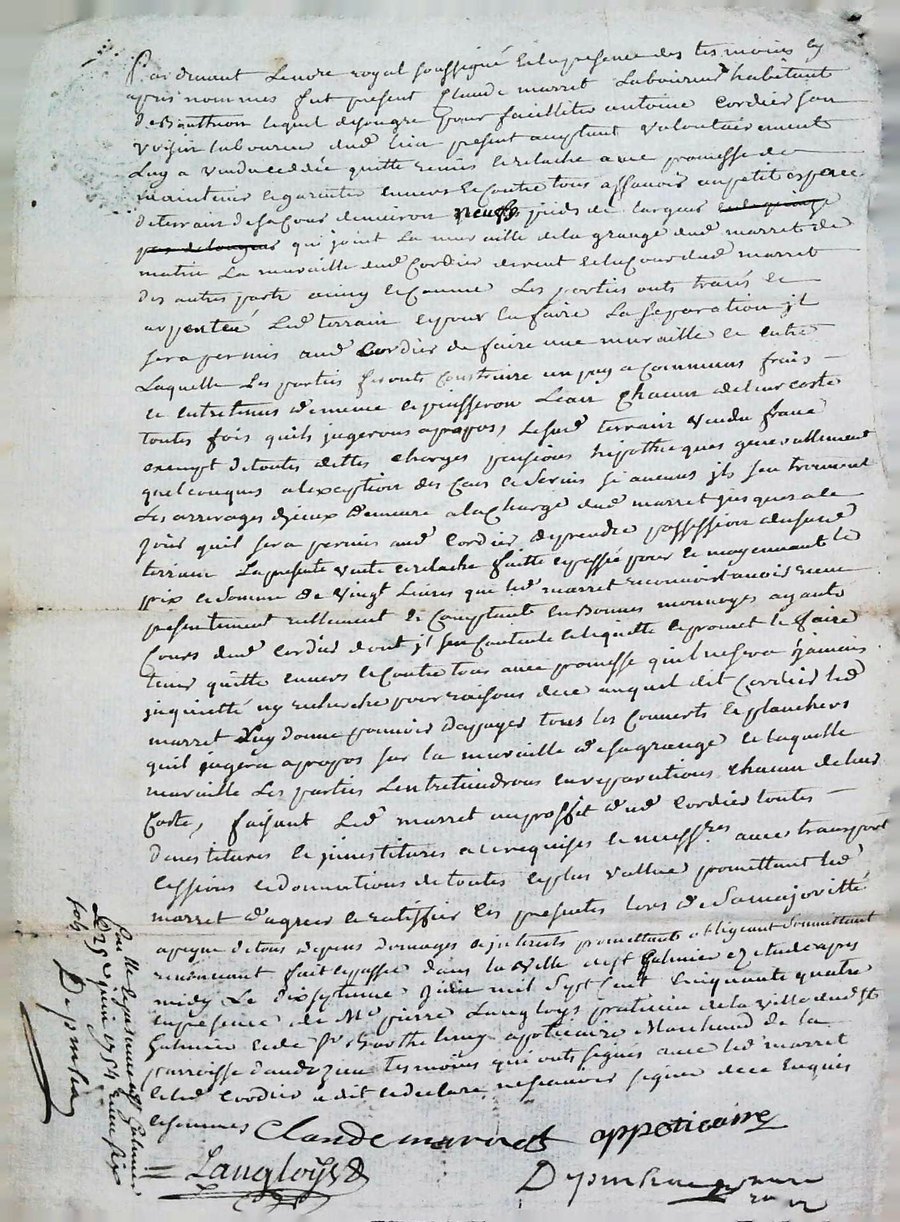 Pardevant Lenore royal soussigné et en presence des tesmoins cy
apres nommes fut present Claude marret Laboureur habitant
de lequel de son gre pour faciliter antoine Cordier son
voisin laboureur dud lieu present acceptant volontairement
Luy a vendu cedé quitte remis et relache avec promesse de
maintenir et garentir envers et contre tous assavoir un petit espace
de terrain de sa Cour denviron neufs pieds de largeur
qui joint La muraille de la grange dud marret de
matin La muraille dud Cordier de vent et la Cour dud marret
des autres parts ainsy et comme Les parties onts tracés et
arpenteé Led terrain et pour en faire La separation jl
sera permis aud Cordier de faire une muraille et entre
Laquelle Les parties feronts Construire un a communs frais
et entretenus de meme et puisseron Leau Chacun de leur costé
toutes fois quils jugerons apropos, Lesusd terrain vendu franc
exempt de toutes dettes charges pensions hipotheques generallement
quelconques a lexception des Cens et Servis si aucuns jls sen trouvent
Les arrerages djceux demeure a la Charge dud marret jusques a ce
jour quil sera permis aud Cordier de prendre possession du susd
terrain La presente vente et relache faitte et passée pour et moyennant le
prix et Somme de Vingt Livres que led marret reconnoist avoir receu
presentement reellement et Comptant en bonnes monnoyes ayants
Cours dud Cordier dont jl sen Contente et le quitte et promet le faire
tenir quitte envers et Contre tous avec promesse quil ne sera jamais
jnquietté ny recherché pour raisons de ce auquel dit Cordier led
marret Luy donne pouvoir dapuyer tous les Couverts et planchers
quil jugera apropos sur la muraille de sa grange et laquelle
muraille Les parties Lentretiendrons en reparations Chacun de leur
Costé, faisant Led marret au proffit dud Cordier toutes
devestitures et jnvestitures a ce requises et necessres avec transport
cessions et donnations de toutes et plus vallue promettant led
marret dagreer et ratiffier les presentes lors de sa majoritté
a peyne de tous depens domages et jnterests promettants obligeant soumettant
renoncant fait et passé dans la ville de st Galmier etude apres
midy Le dixseptieme juin mil Sept Cent Cinquante quatre
en presence de Me pierre Langloys praticien de la ville dud st
Galmier et de Sr Barthelemy apoticaire Marchand de la
parroisse tesmoins qui onts signés avec led marret
et led Cordier a dit et declaré ne scavoir signer de ce Enquis
et sommes
Claude marret appoticaire
Langloys
Con lle a st Galmier
Le 25e juin 1754 receu six
sols